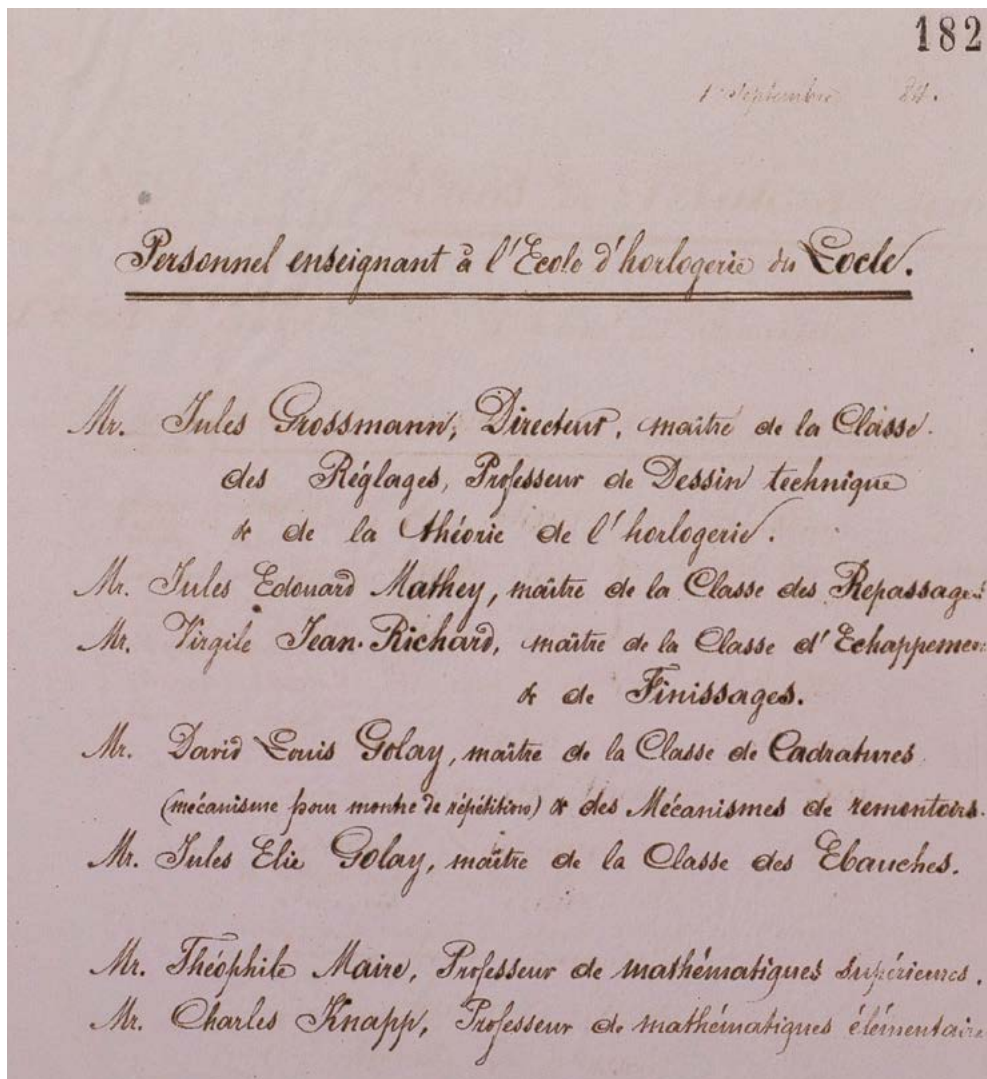 182
1 Septembre 84.
Personnel enseignant à l'Ecole d'horlogerie du Locle.
Mr. Jules Grossmann, Directeur, maître de la Classe
des Réglages, Professeur de Dessin technique
& de la théorie de l'horlogerie.
Mr. Jules Edouard Mathey, maître de la Classe des Repassages
Mr. Virgile Jean-Richard, maître de la Classe d'Echappemen
& de Finissages.
Mr. David Louis Golay, maître de la Classe de Cadratures
(mécanisme pour montre de répétition) & des Mécanismes de remontoirs.
Mr. Jules Elie Golay, maître de la Classe des Ebauches.
Mr. Théophile Maire, Professeur de mathématiques supérieures.
Mr. Charles Knapp, Professeur de mathématiques élémentaire